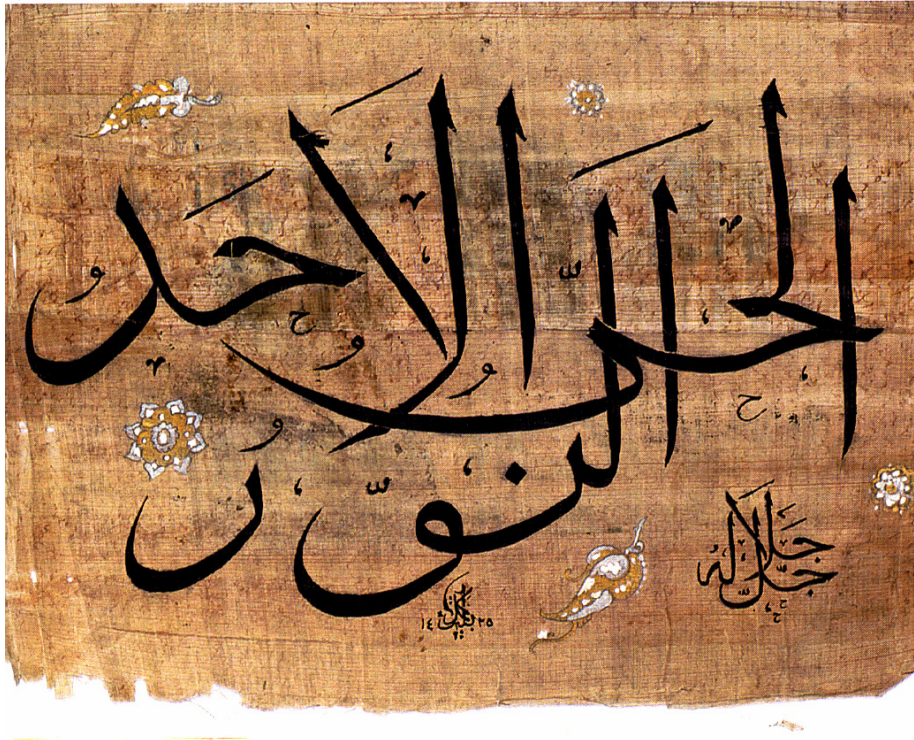 الحَىُّ الاَحَدُ
النُّورُ
جَلَّ جَلَالُهُ
١٤٢٥